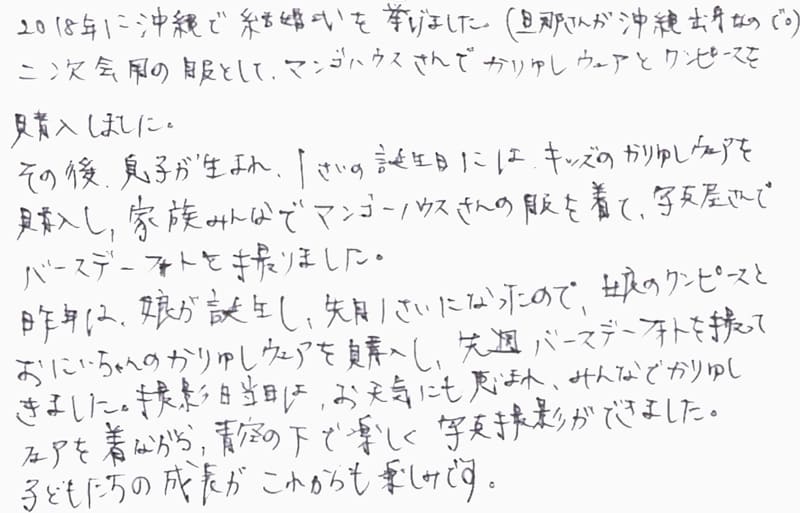 2018年に沖縄で結婚式を挙げました。(旦那さんが沖縄出身なので。)
二次会用の服として、マンゴハウスさんでかりゆしウェアとワンピースを
購入しました。
その後、息子が生まれ、1さいの誕生日には、キッズのかりゆしウェアを
購入し、家族みんなでマンゴーハウスさんの服を着て、写真屋さんで
バースデーフォトを撮りました。
昨年は、娘が誕生し、先月1さいになったので、娘のワンピースと
おにいちゃんのかりゆしウェアを購入し、先週バースデーフォトを撮って
きました。撮影日当日は、お天気にも恵まれ、みんなでかりゆし
ウェアを着ながら、青空の下で楽しく写真撮影ができました。
子どもたちの成長がこれからも楽しみです。